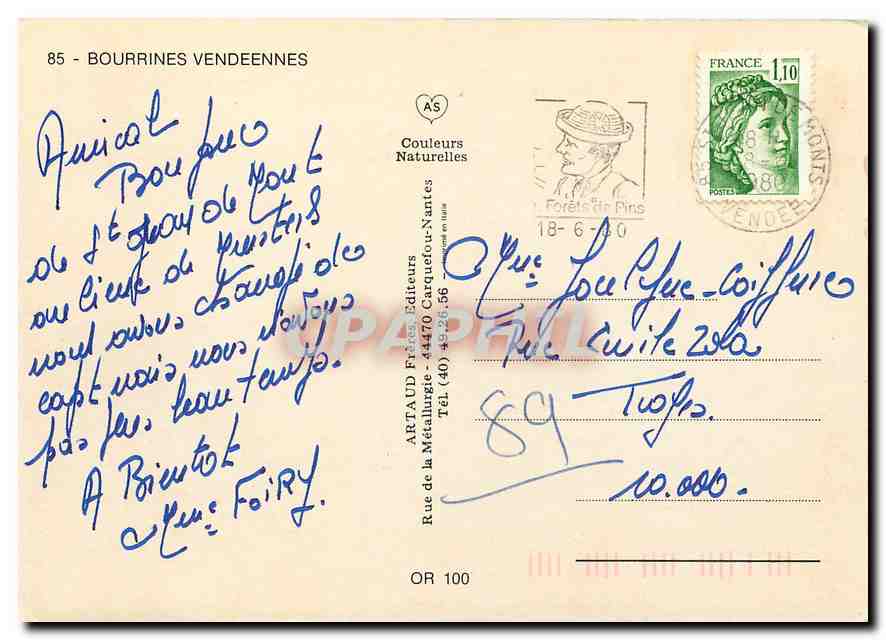 85 - BOURRINES VENDEENNES
Amical
Bonjour
de St Jean de Mont
au lieux de
nous avons changé de
capt mais nous n'avons
pas plus beau temps.
A Bientot
Mme FOIRY.
A S
Couleurs
Naturelles
ARTAUD Frères, Editeurs
Rue de la Métallurgie - 44470 Carquefou-Nantes
Tél. (40) 49.26.56 - Imprimé en Italie
OR 100
Forêts de Pins
18-6-80
FRANCE 1,10
POSTES
85 ST DE MONTS
18
1980
VENDEE
Mme Coiffure
Rue Emile Zola
Troyes.
10.000.
89
CPAPHIL